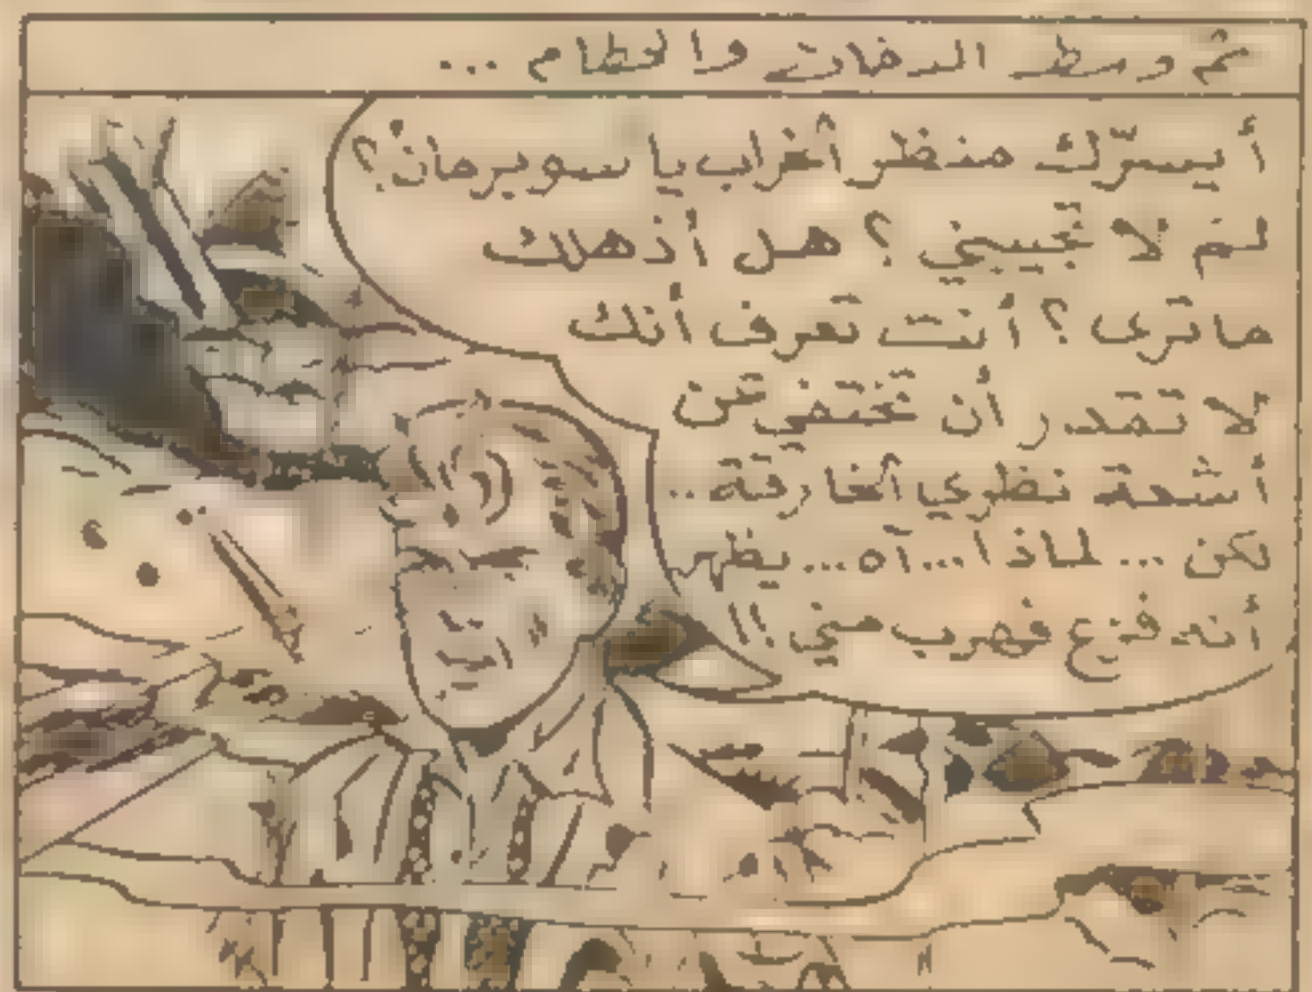 ثم وسط الدفات والحطام ...
أيسرّك منظر الخراب يا سوبرمان؟
لم لا تجيبني؟ هل أذهلك
ما ترى؟ أنت تعرف أنك
لا تقدر أن تختفي عن
أشعة نظري الخارقة..
لكن ... لماذا ا...آه... يظهر
أنه فزع فهرب مني !!